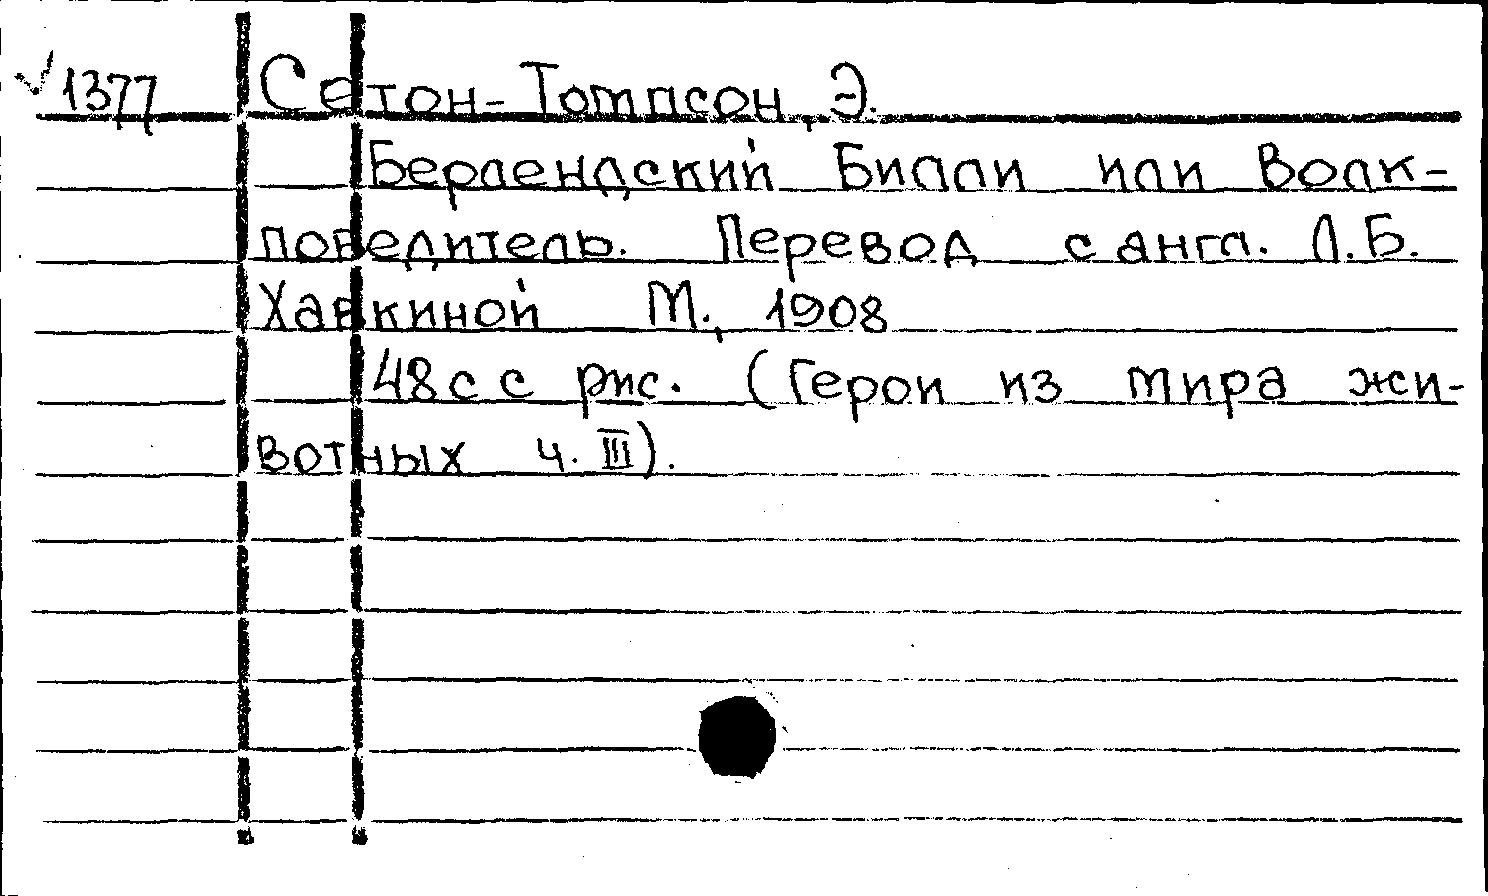 √1377 Сетон-Томпсон, Э.
Берлендский Билли или Волк-
победитель. Перевод с англ. Л.Б.
Хавкиной М., 1908
48 с с рис. (Герои из мира жи-
вотных ч. III).